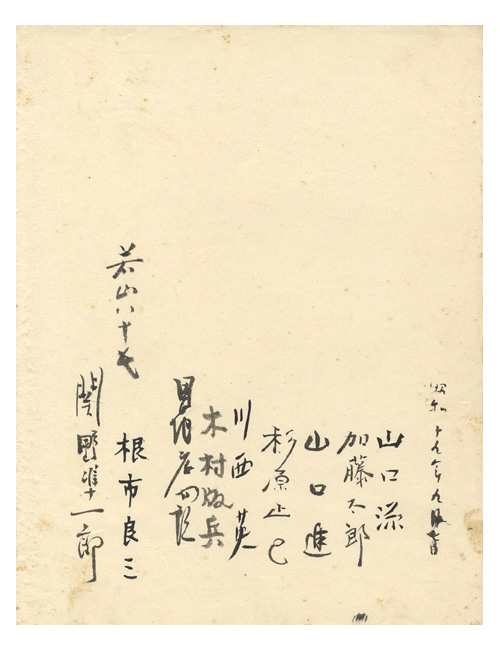 昭和十九年九月
山口源
加藤太郎
山口進
杉原正巳
川西英
木村版兵
根市良三
関野凖一郎
若山八十氏